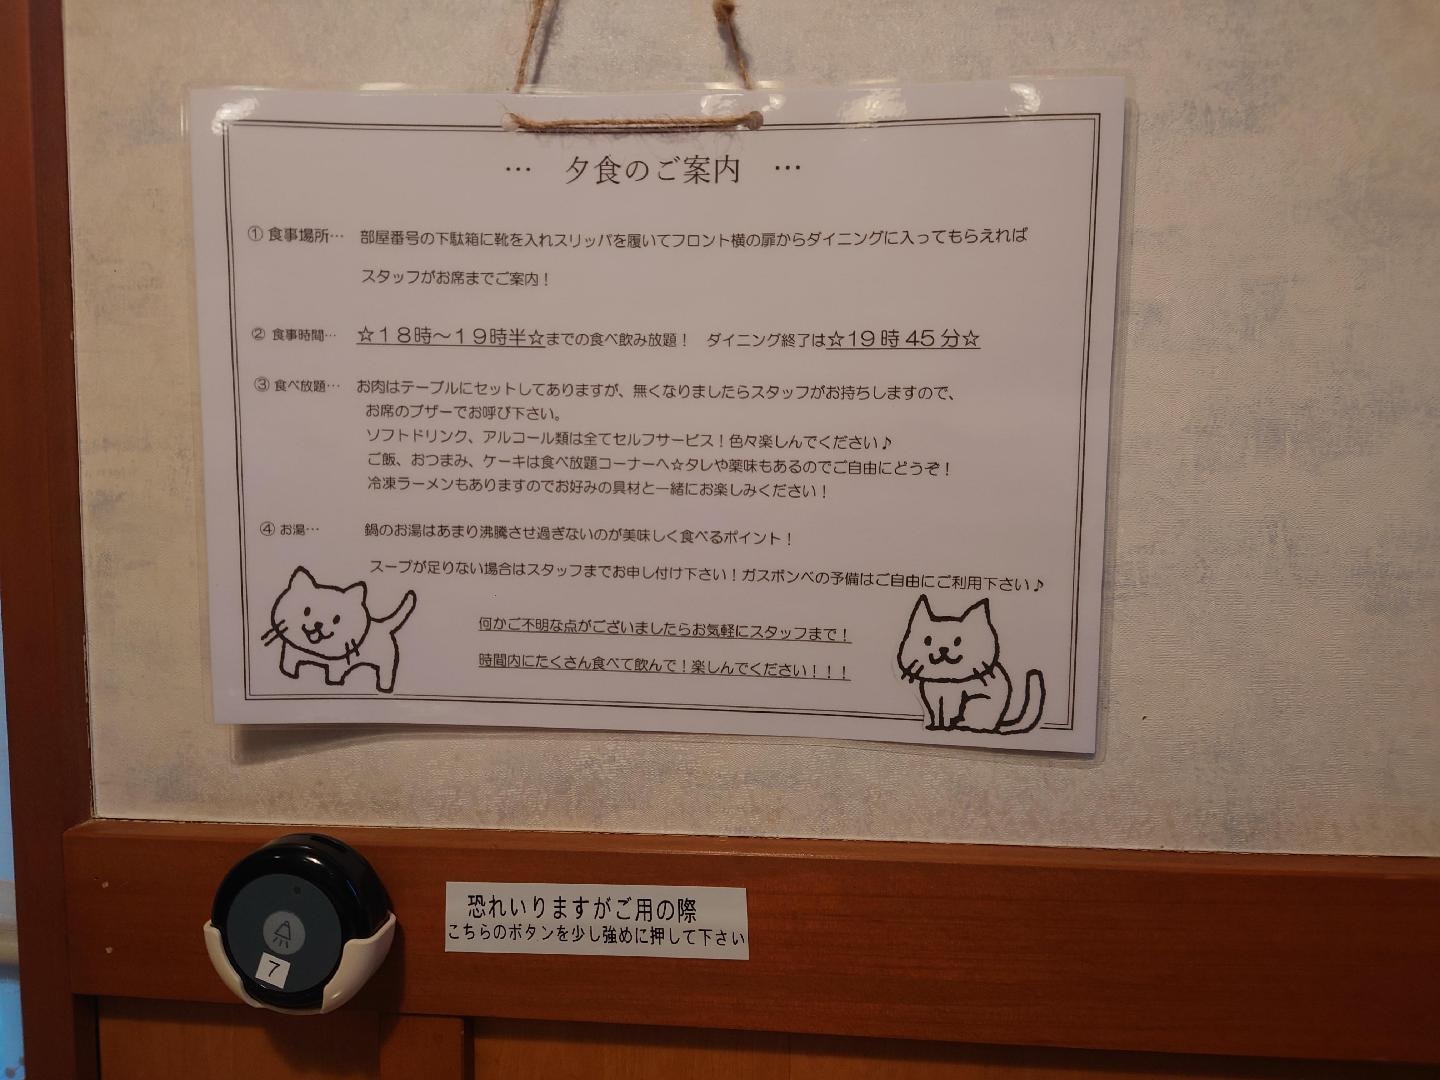 … 夕食のご案内 …
① 食事場所… 部屋番号の下駄箱に靴を入れスリッパを履いてフロント横の扉からダイニングに入ってもらえれば
スタッフがお席までご案内！
② 食事時間… ☆18時～19時半☆までの食べ飲み放題！ ダイニング終了は☆19時45分☆
③ 食べ放題… お肉はテーブルにセットしてありますが、無くなりましたらスタッフがお持ちしますので、
お席のブザーでお呼び下さい。
ソフトドリンク、アルコール類は全てセルフサービス！色々楽しんでください♪
ご飯、おつまみ、ケーキは食べ放題コーナーへ☆タレや薬味もあるのでご自由にどうぞ！
冷凍ラーメンもありますのでお好みの具材と一緒にお楽しみください！
④ お湯… 鍋のお湯はあまり沸騰させ過ぎないのが美味しく食べるポイント！
スープが足りない場合はスタッフまでお申し付け下さい！ガスボンベの予備はご自由にご利用下さい♪
何かご不明な点がございましたらお気軽にスタッフまで！
時間内にたくさん食べて飲んで！楽しんでください！！！
7
恐れいりますがご用の際
こちらのボタンを少し強めに押して下さい